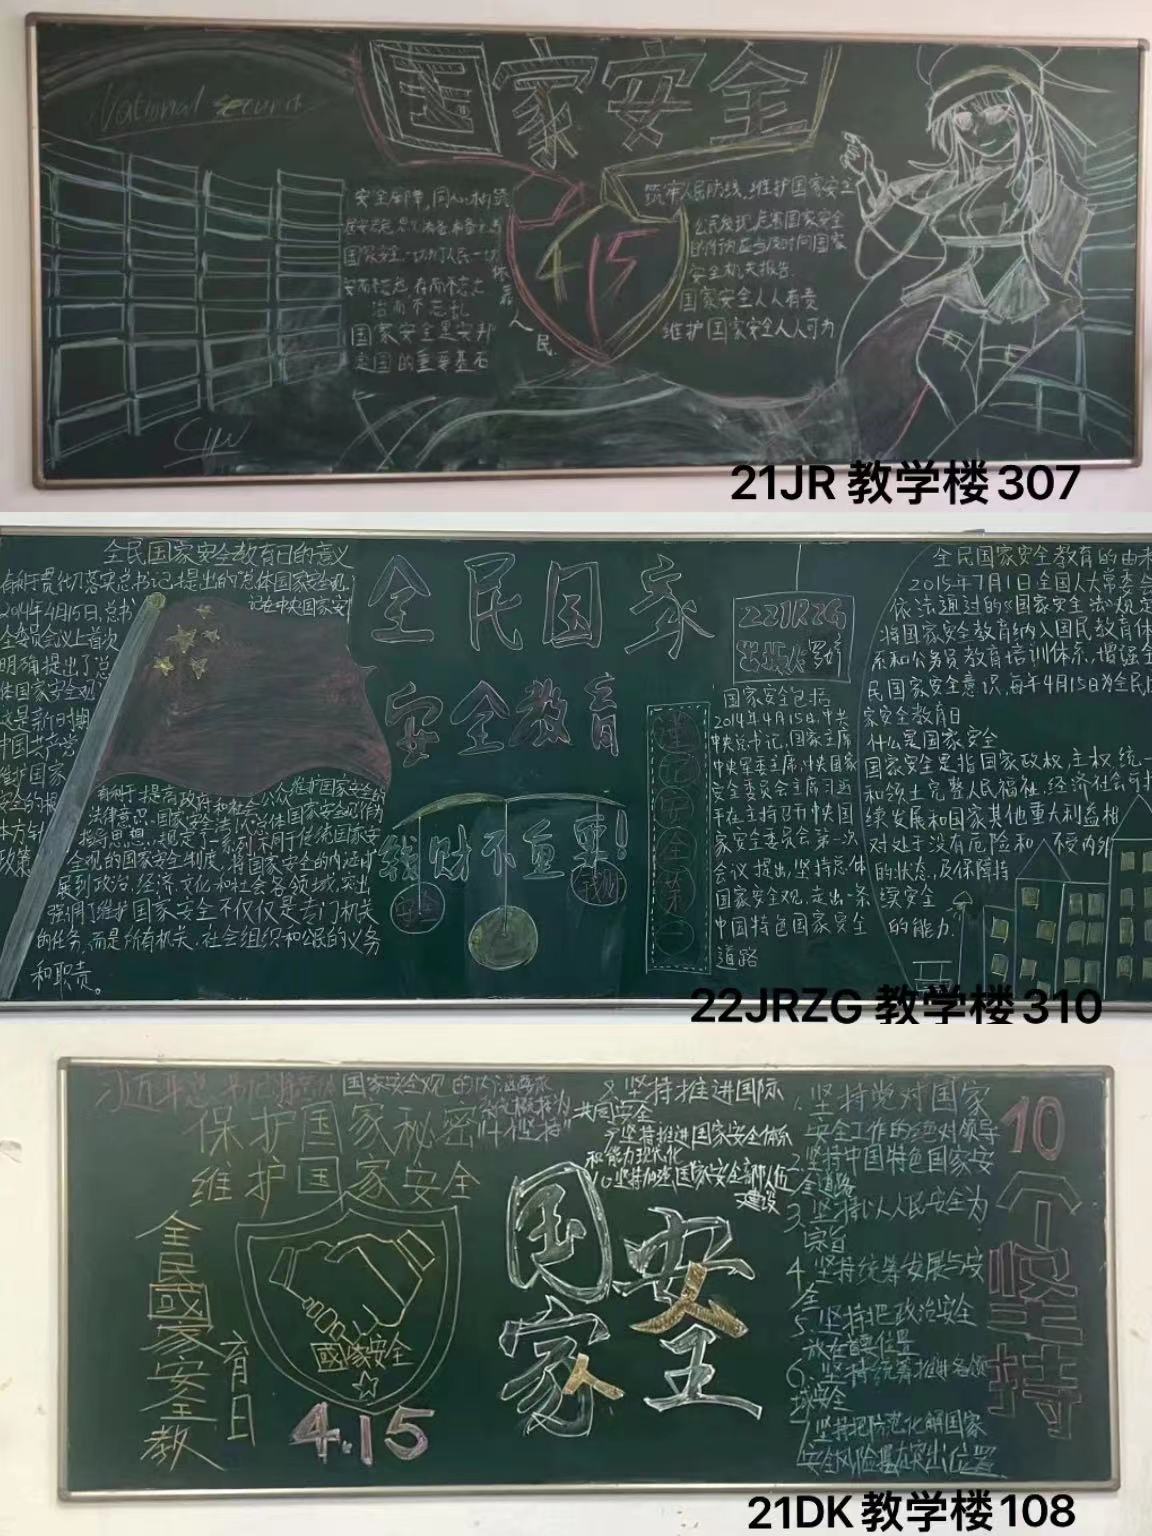 National security
国家安全
4 15
安而不忘危 存而不忘亡
治而不忘乱
国家安全是安邦
定国的重要基石
人
民
筑牢人民防线,维护国家安全
公民发现危害国家安全
的行为应当及时向国家
安全机关报告.
国家安全人人有责
维护国家安全人人可为
21JR 教学楼307
全民国家安全教育日的意义
有利于贯彻落实总书记提出的总体国家安全观
2014年4月15日,总书
记在中央国家安
全委员会议上首次
明确提出了总
体国家安全观
这是新时期
中国共产党
维护国家
安全的根
本方针
政策
有利于提高政府和社会公众维护国家安全的
法律意识.国家安全法以总体国家安全观作为
指导思想,规定了一系列采用于传统国家安
全观的国家安全制度,将国家安全的内涵扩
展到政治,经济,文化和社会各领域,突出
强调了维护国家安全不仅仅是专门机关
的任务,而是所有机关,社会组织和公民的义务
和职责。
全民国家
安全教育
钱财不重要!
安全
金钱
22JRZG
谨记安全第一
国家安全包括
2014年4月15日,中共
中央总书记,国家主席
中央军委主席,中央国家
安全委员会主席习近
平在主持召开中央国
家安全委员会第一次
会议提出,坚持总体
国家安全观,走出一条
中国特色国家安全
道路
全民国家安全教育的由来
2015年7月1日全国人大常委会
依法通过的《国家安全法》规定
将国家安全教育纳入国民教育体
系和公务员教育培训体系,增强全
民国家安全意识,每年4月15日为全民国
家安全教育日
什么是国家安全
国家安全是指国家政权,主权,统一
和领土完整,人民福祉,经济社会可持
续发展和国家其他重大利益相
对处于没有危险和不受内外
的状态,及保障持
续安全
的能力.
22JRZG 教学楼310
习近平总书记 国家安全观的
保护国家秘密
维护国家安全
"十个坚持"
全民國家安全教
育日
國家安全
4.15
8.坚持推进国际
共同安全
9.坚持推进国家安全体系
和能力现代化
10.坚持加强国家安全部队伍
建设
国家安全
1.坚持党对国家
安全工作的绝对领导
2.坚持中国特色国家安
全道路
3.坚持以人民安全为
宗旨
4.坚持统筹发展与安
全
5.坚持把政治安全
放在首要位置
6.坚持统筹推进各领
域安全
7.坚持把防范化解国家
安全风险摆在突出位置
10个坚持
21DK 教学楼108